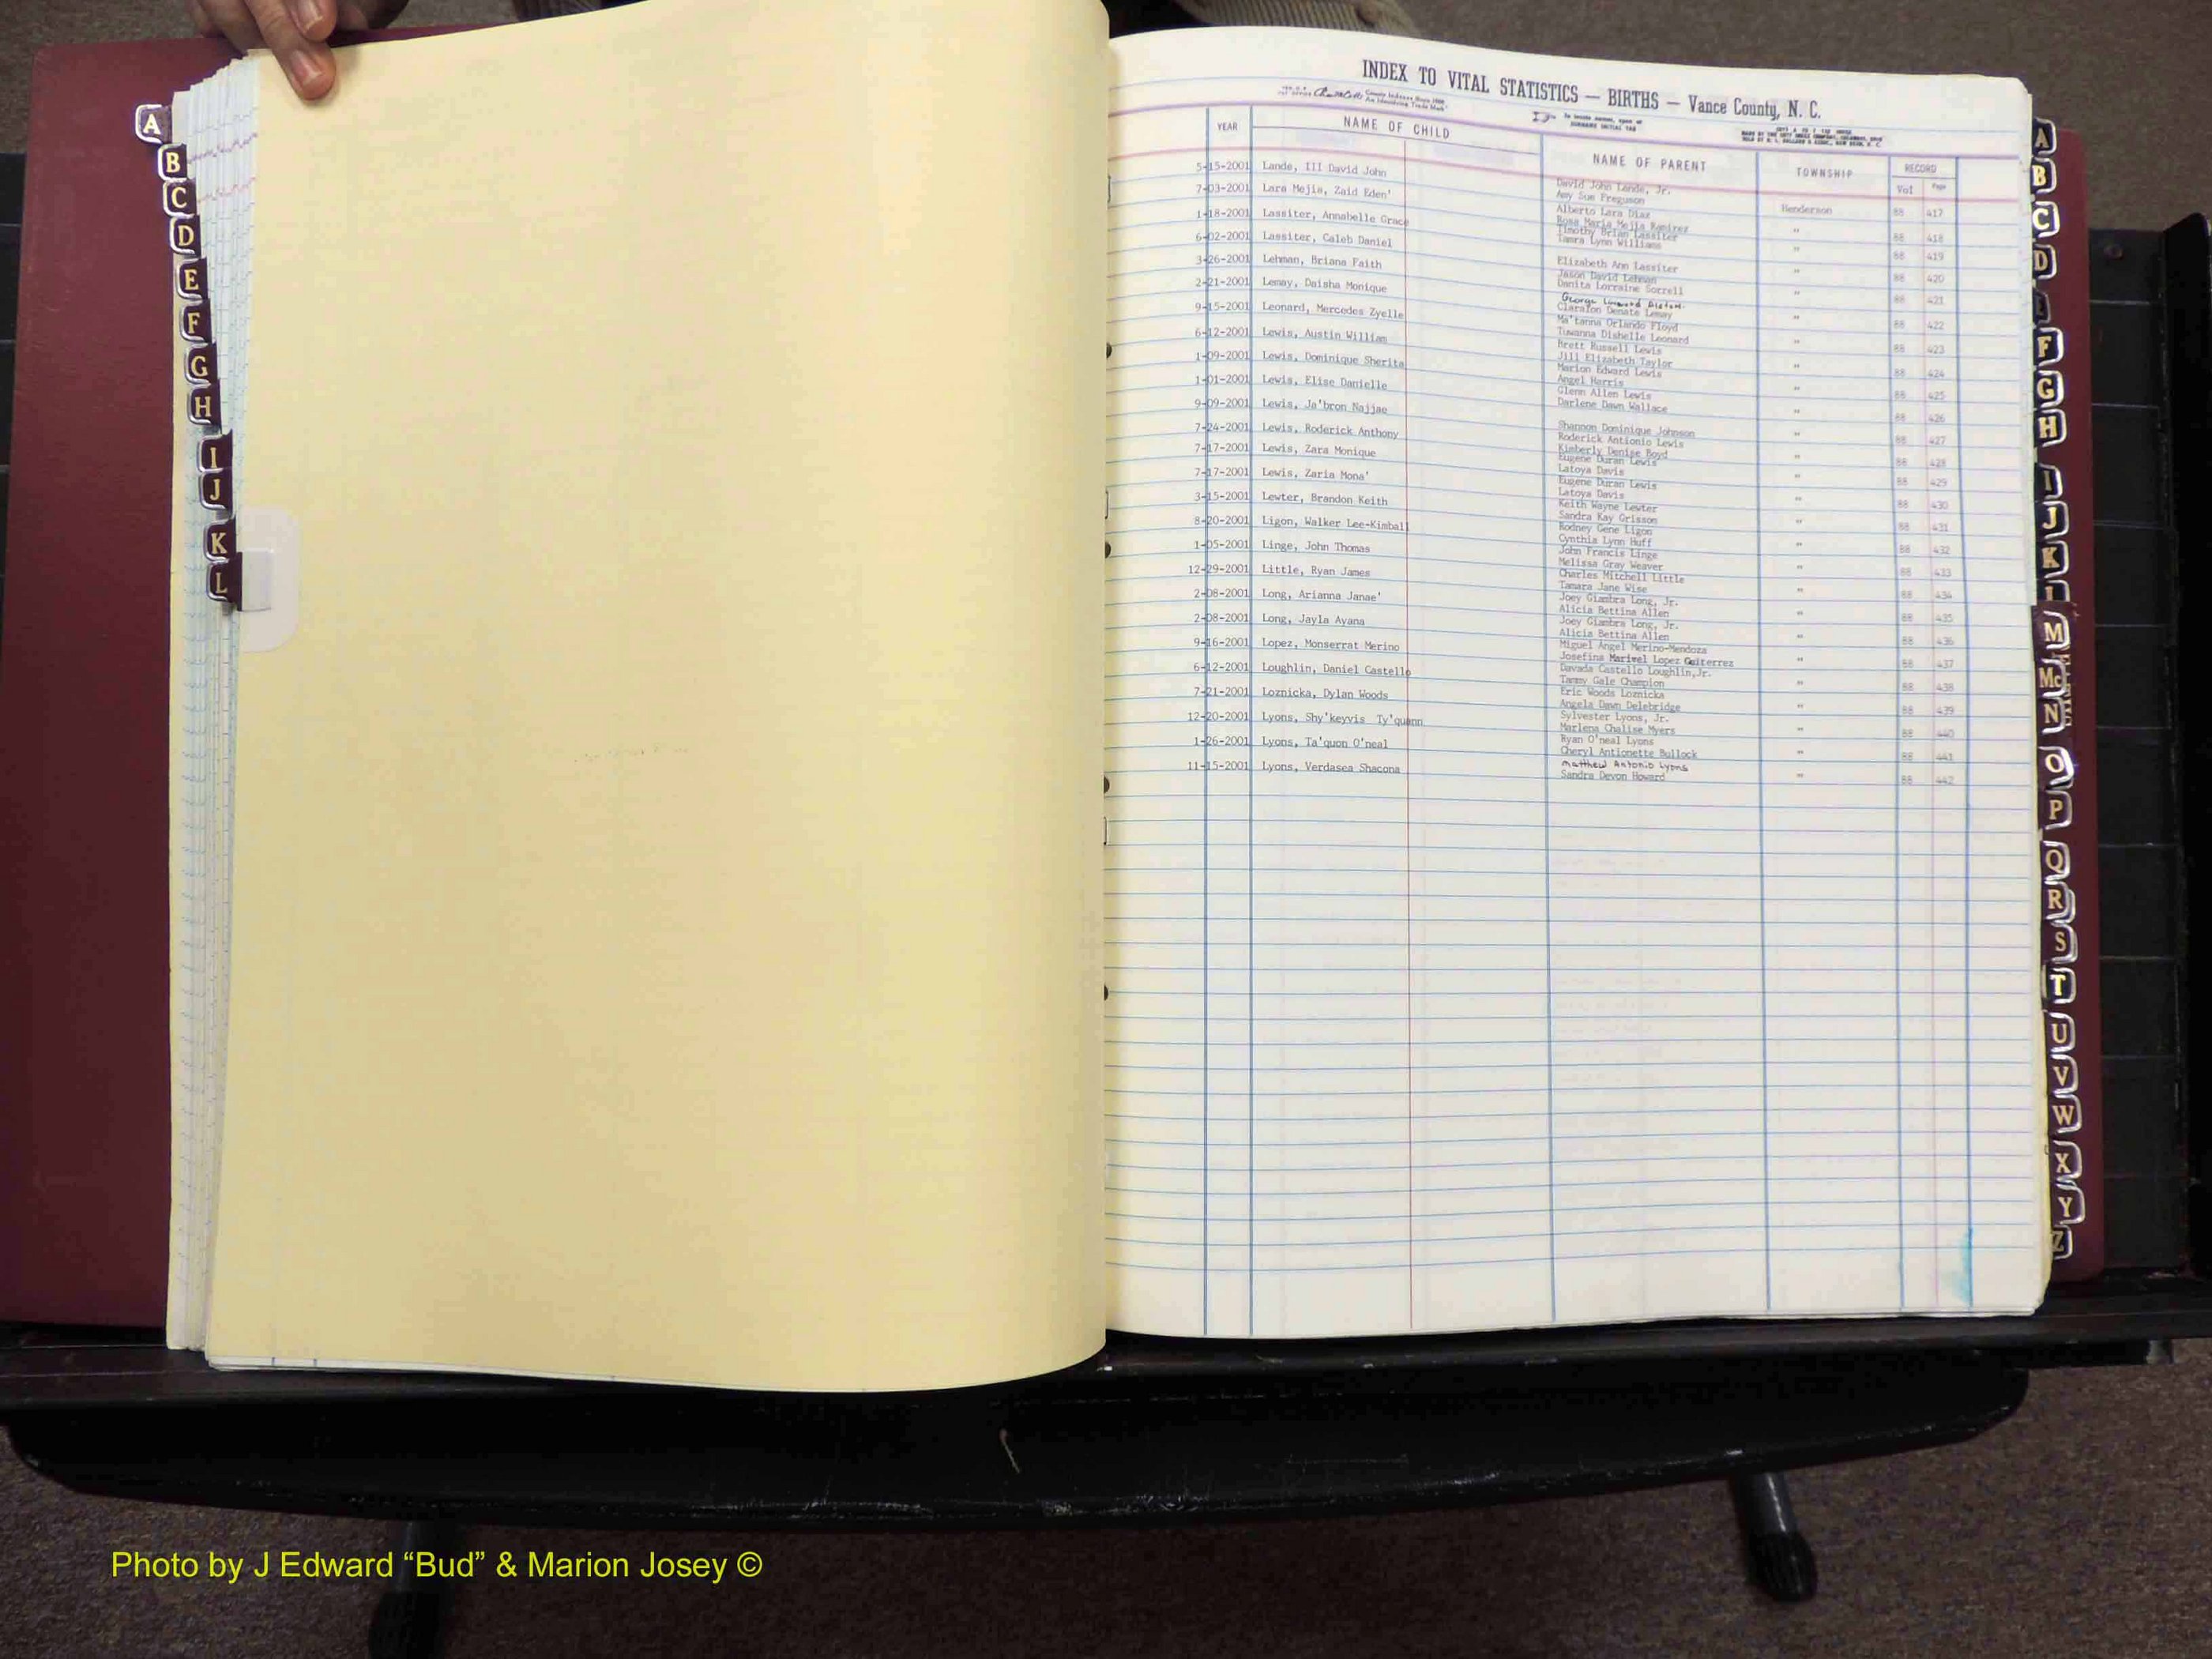 INDEX TO VITAL STATISTICS — BIRTHS — Vance County, N. C.
To locate names, open at
SURNAME INITIAL TAB
YEAR NAME OF CHILD NAME OF PARENT TOWNSHIP RECORD
Vol Page
5-15-2001 Lande, III David John David John Lande, Jr.
Amy Sue Freguson Henderson 88 417
7-03-2001 Lara Mejia, Zaid Eden' Alberto Lara Diaz
Rosa Maria Mejia Ramirez " 88 418
1-18-2001 Lassiter, Annabelle Grace Timothy Brian Lassiter
Tamra Lynn Williams " 88 419
6-02-2001 Lassiter, Caleb Daniel
Elizabeth Ann Lassiter " 88 420
3-26-2001 Lehman, Briana Faith Jason David Lehman
Danita Lorraine Sorrell " 88 421
2-21-2001 Lemay, Daisha Monique George
Denate Lemay " 88 422
9-15-2001 Leonard, Mercedes Zyelle Ma'tanna Orlando Floyd
Tuwanna Dishelle Leonard " 88 423
6-12-2001 Lewis, Austin William Brett Russell Lewis
Jill Elizabeth Taylor " 88 424
1-09-2001 Lewis, Dominique Sherita Marion Edward Lewis
Angel Harris " 88 425
1-01-2001 Lewis, Elise Danielle Glenn Allen Lewis
Darlene Dawn Wallace " 88 426
9-09-2001 Lewis, Ja'bron Najjae
Shannon Dominique Johnson " 88 427
7-24-2001 Lewis, Roderick Anthony Roderick Antionio Lewis
Kimberly Denise Boyd " 88 428
7-17-2001 Lewis, Zara Monique Eugene Duran Lewis
Latoya Davis " 88 429
7-17-2001 Lewis, Zaria Mona' Eugene Duran Lewis
Latoya Davis " 88 430
3-15-2001 Lewter, Brandon Keith Keith Wayne Lewter
Sandra Kay Grissom " 88 431
8-20-2001 Ligon, Walker Lee-Kimball Rodney Gene Ligon
Cynthia Lynn Huff " 88 432
1-05-2001 Linge, John Thomas John Francis Linge
Melissa Gray Weaver " 88 433
12-29-2001 Little, Ryan James Charles Mitchell Little
Tamara Jane Wise " 88 434
2-08-2001 Long, Arianna Janae' Joey Giambra Long, Jr.
Alicia Bettina Allen " 88 435
2-08-2001 Long, Jayla Ayana Joey Giambra Long, Jr.
Alicia Bettina Allen " 88 436
9-16-2001 Lopez, Monserrat Merino Miguel Angel Merino-Mendoza
Josefina Marivel Lopez Guiterrez " 88 437
6-12-2001 Loughlin, Daniel Castello Davada Castello Loughlin,Jr.
Tammy Gale Champion " 88 438
7-21-2001 Loznicka, Dylan Woods Eric Woods Loznicka
Angela Dawn Delebridge " 88 439
12-20-2001 Lyons, Shy'keyvis Ty'quann Sylvester Lyons, Jr.
Marlena Chalise Myers " 88 440
1-26-2001 Lyons, Ta'quon O'neal Ryan O'neal Lyons
Cheryl Antionette Bullock " 88 441
11-15-2001 Lyons, Verdasea Shacona Matthew Antonio Lyons
Sandra Devon Howard " 88 442
A
B
C
D
E
F
G
H
I
J
K
L
A
B
C
D
F
G
H
I
J
K
L
M
Mc
N
O
P
Q
R
S
T
U
V
W
X
Y
Z
Photo by J Edward “Bud” & Marion Josey ©